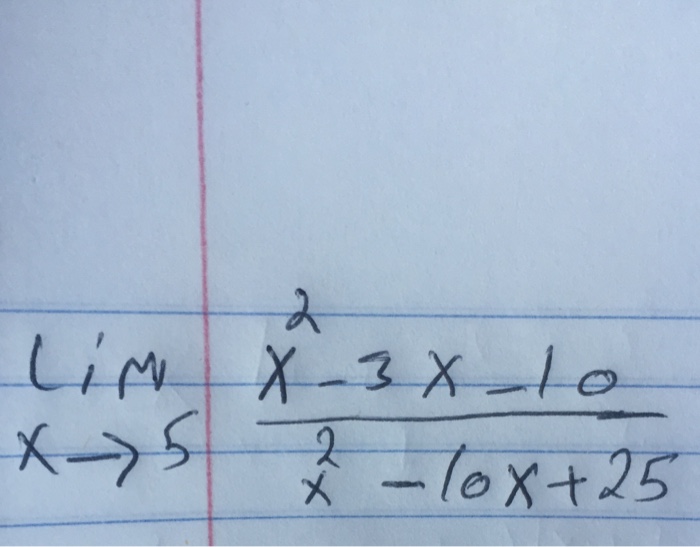 lim x→5 (x² - 3x - 10) / (x² - 10x + 25)